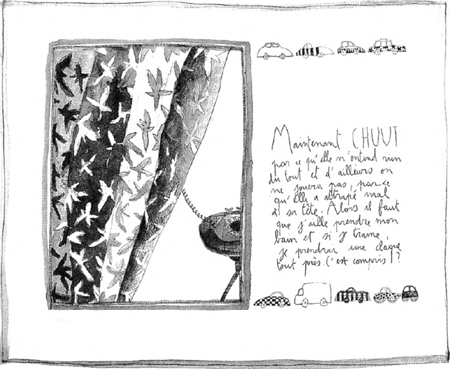 Maintenant CHUUT
parce qu'elle n'entend rien
du tout et d'ailleurs on
ne jouera pas, parce
qu'elle a attrapé mal
à sa tête. Alors il faut
que j'aille prendre mon
bain et si je traine,
je prendrai une claque
tout près (c'est compris)?